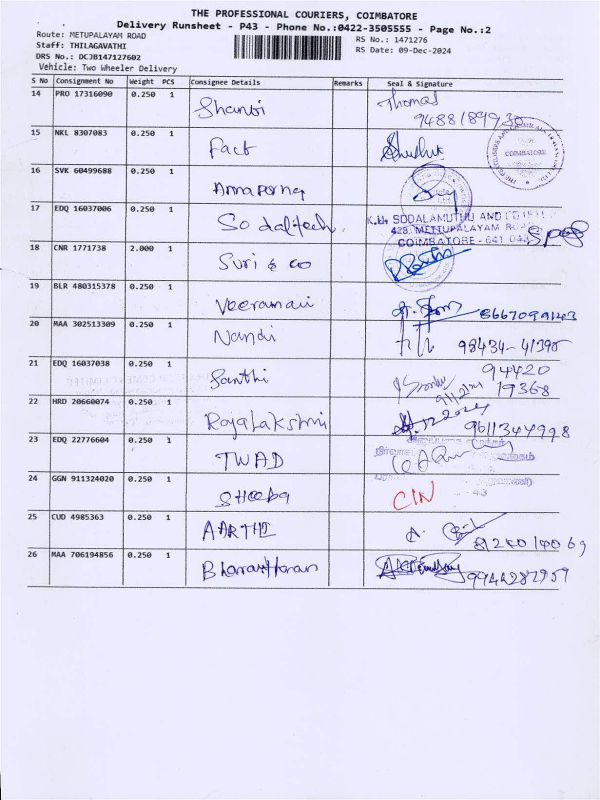 THE PROFESSIONAL COURIERS, COIMBATORE
Delivery Runsheet - P43 - Phone No.:0422-3505555 - Page No.:2
Route: METUPALAYAM ROAD
RS No.: 1471276
Staff: THILAGAVATHI
RS Date: 09-Dec-2024
DRS No.: DCJB147127602
Vehicle: Two Wheeler Delivery
S No Consignment No Weight PCS Consignee Details Remarks Seal & Signature
14 PRO 17316090 0.250 1 Shanvi Thomas
9488189930
15 NKL 8307083 0.250 1 Fact
COIMBATORE
16 SVK 60499688 0.250 1 Annaporna
17 EDQ 16037006 0.250 1 Sodaltech
SODALAMUTHU AND CO
428, METTUPALAYAM
COIMBATORE - 641 043
18 CNR 1771738 2.000 1 Suri & co
19 BLR 480315378 0.250 1 Veeramani 8667099143
20 MAA 302513309 0.250 1 Nandi 98434-41395
21 EDQ 16037038 0.250 1 Santhi 94420
19368
22 HRD 20660074 0.250 1 Rajalakshmi 9611344998
23 EDQ 22776604 0.250 1 TWAD
24 GGN 911324020 0.250 1 Sheeba CIN
25 CUD 4985363 0.250 1 AARTHI
8124014069
26 MAA 706194856 0.250 1 Bharaitharan 9944287959